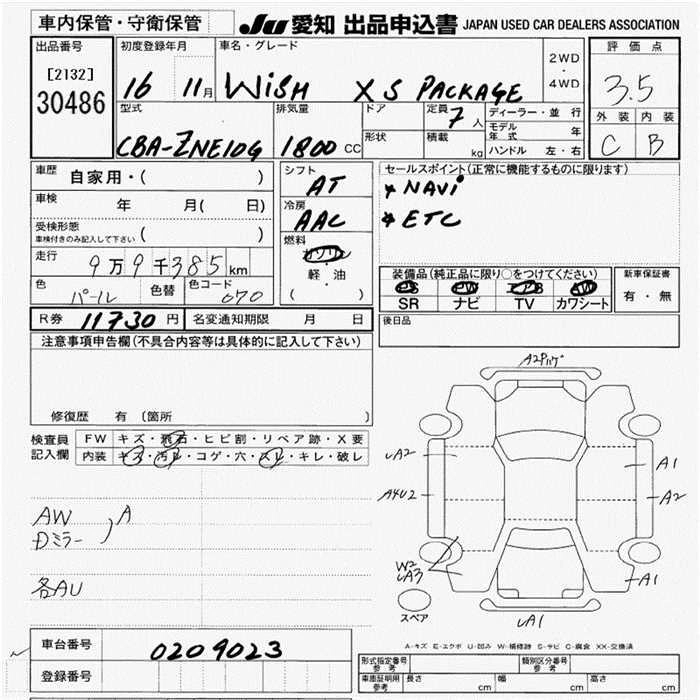 車内保管・守衛保管 JU 愛知 出品申込書 JAPAN USED CAR DEALERS ASSOCIATION
出品番号 初度登録年月 車名・グレード 2WD・4WD 評価点
[2132] 16 11月 WiSH X S PACKAGE 3.5
30486
型式 排気量 ドア 定員 7人 ディーラー・並行 外装 内装
CBA-ZNE10G 1800 CC 形状 積載 kg モデル年式 年 C B
ハンドル 左・右
車歴 自家用・( ) シフト AT セールスポイント(正常に機能するものに限ります)
車検 年 月( 日) 冷房 AAC * NAVi
受検形態 ( ) * ETC
車検付きのみ記入して下さい
走行 9万9千385km 燃料 ガソリン 軽・油 ( )
装備品(純正品に限り○をつけてください) 新車保証書
色 パール 色替 色コード 070
SR ナビ TV カワシート 有・無
R券 11730円 名変通知期限 月 日 後日品
注意事項申告欄(不具合内容等は具体的に記入して下さい)
修復歴 有 (箇所 )
検査員記入欄 FW キズ・飛石・ヒビ割・リペア跡・X要
内装 キズ・汚レ・コゲ・穴・スレ・キレ・破レ
A2P
UA2 A1
A4U2 A2
W2
UA3 A1
スペア UA1
AW A
Dミラー
各AU
A-キズ E-エクボ U-凹み W-補修跡 S-サビ C-腐食 XX-交換済
車台番号 0209023
登録番号
形式指定番号 参考 類別区分番号 参考
車庫証明用 参考 長さ cm 幅 cm 高さ cm